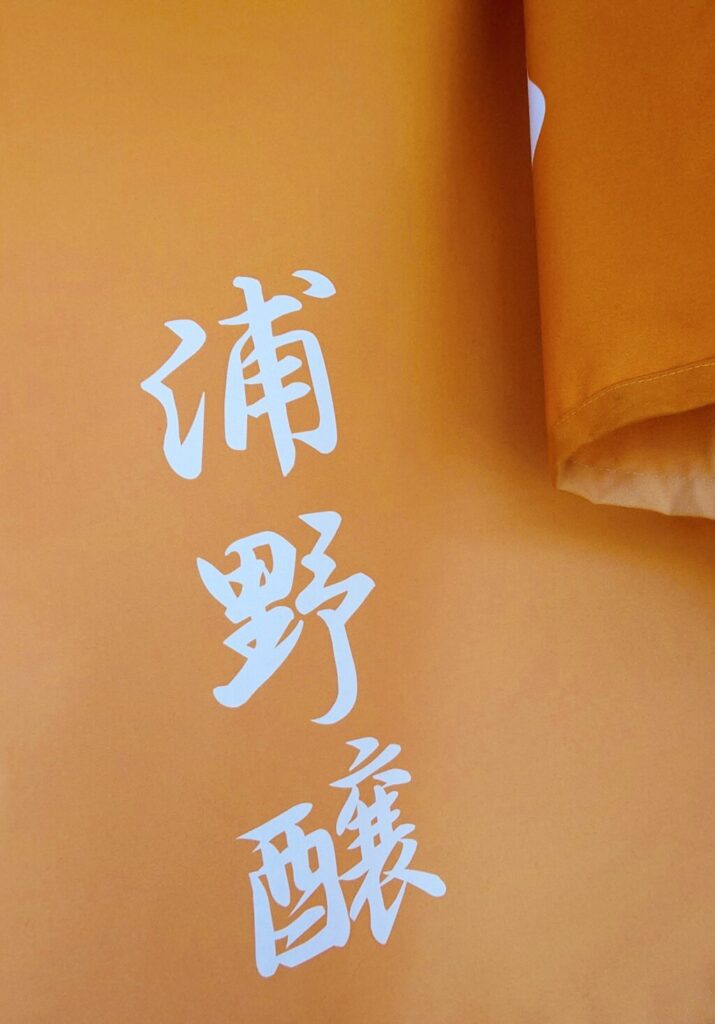 浦野醸